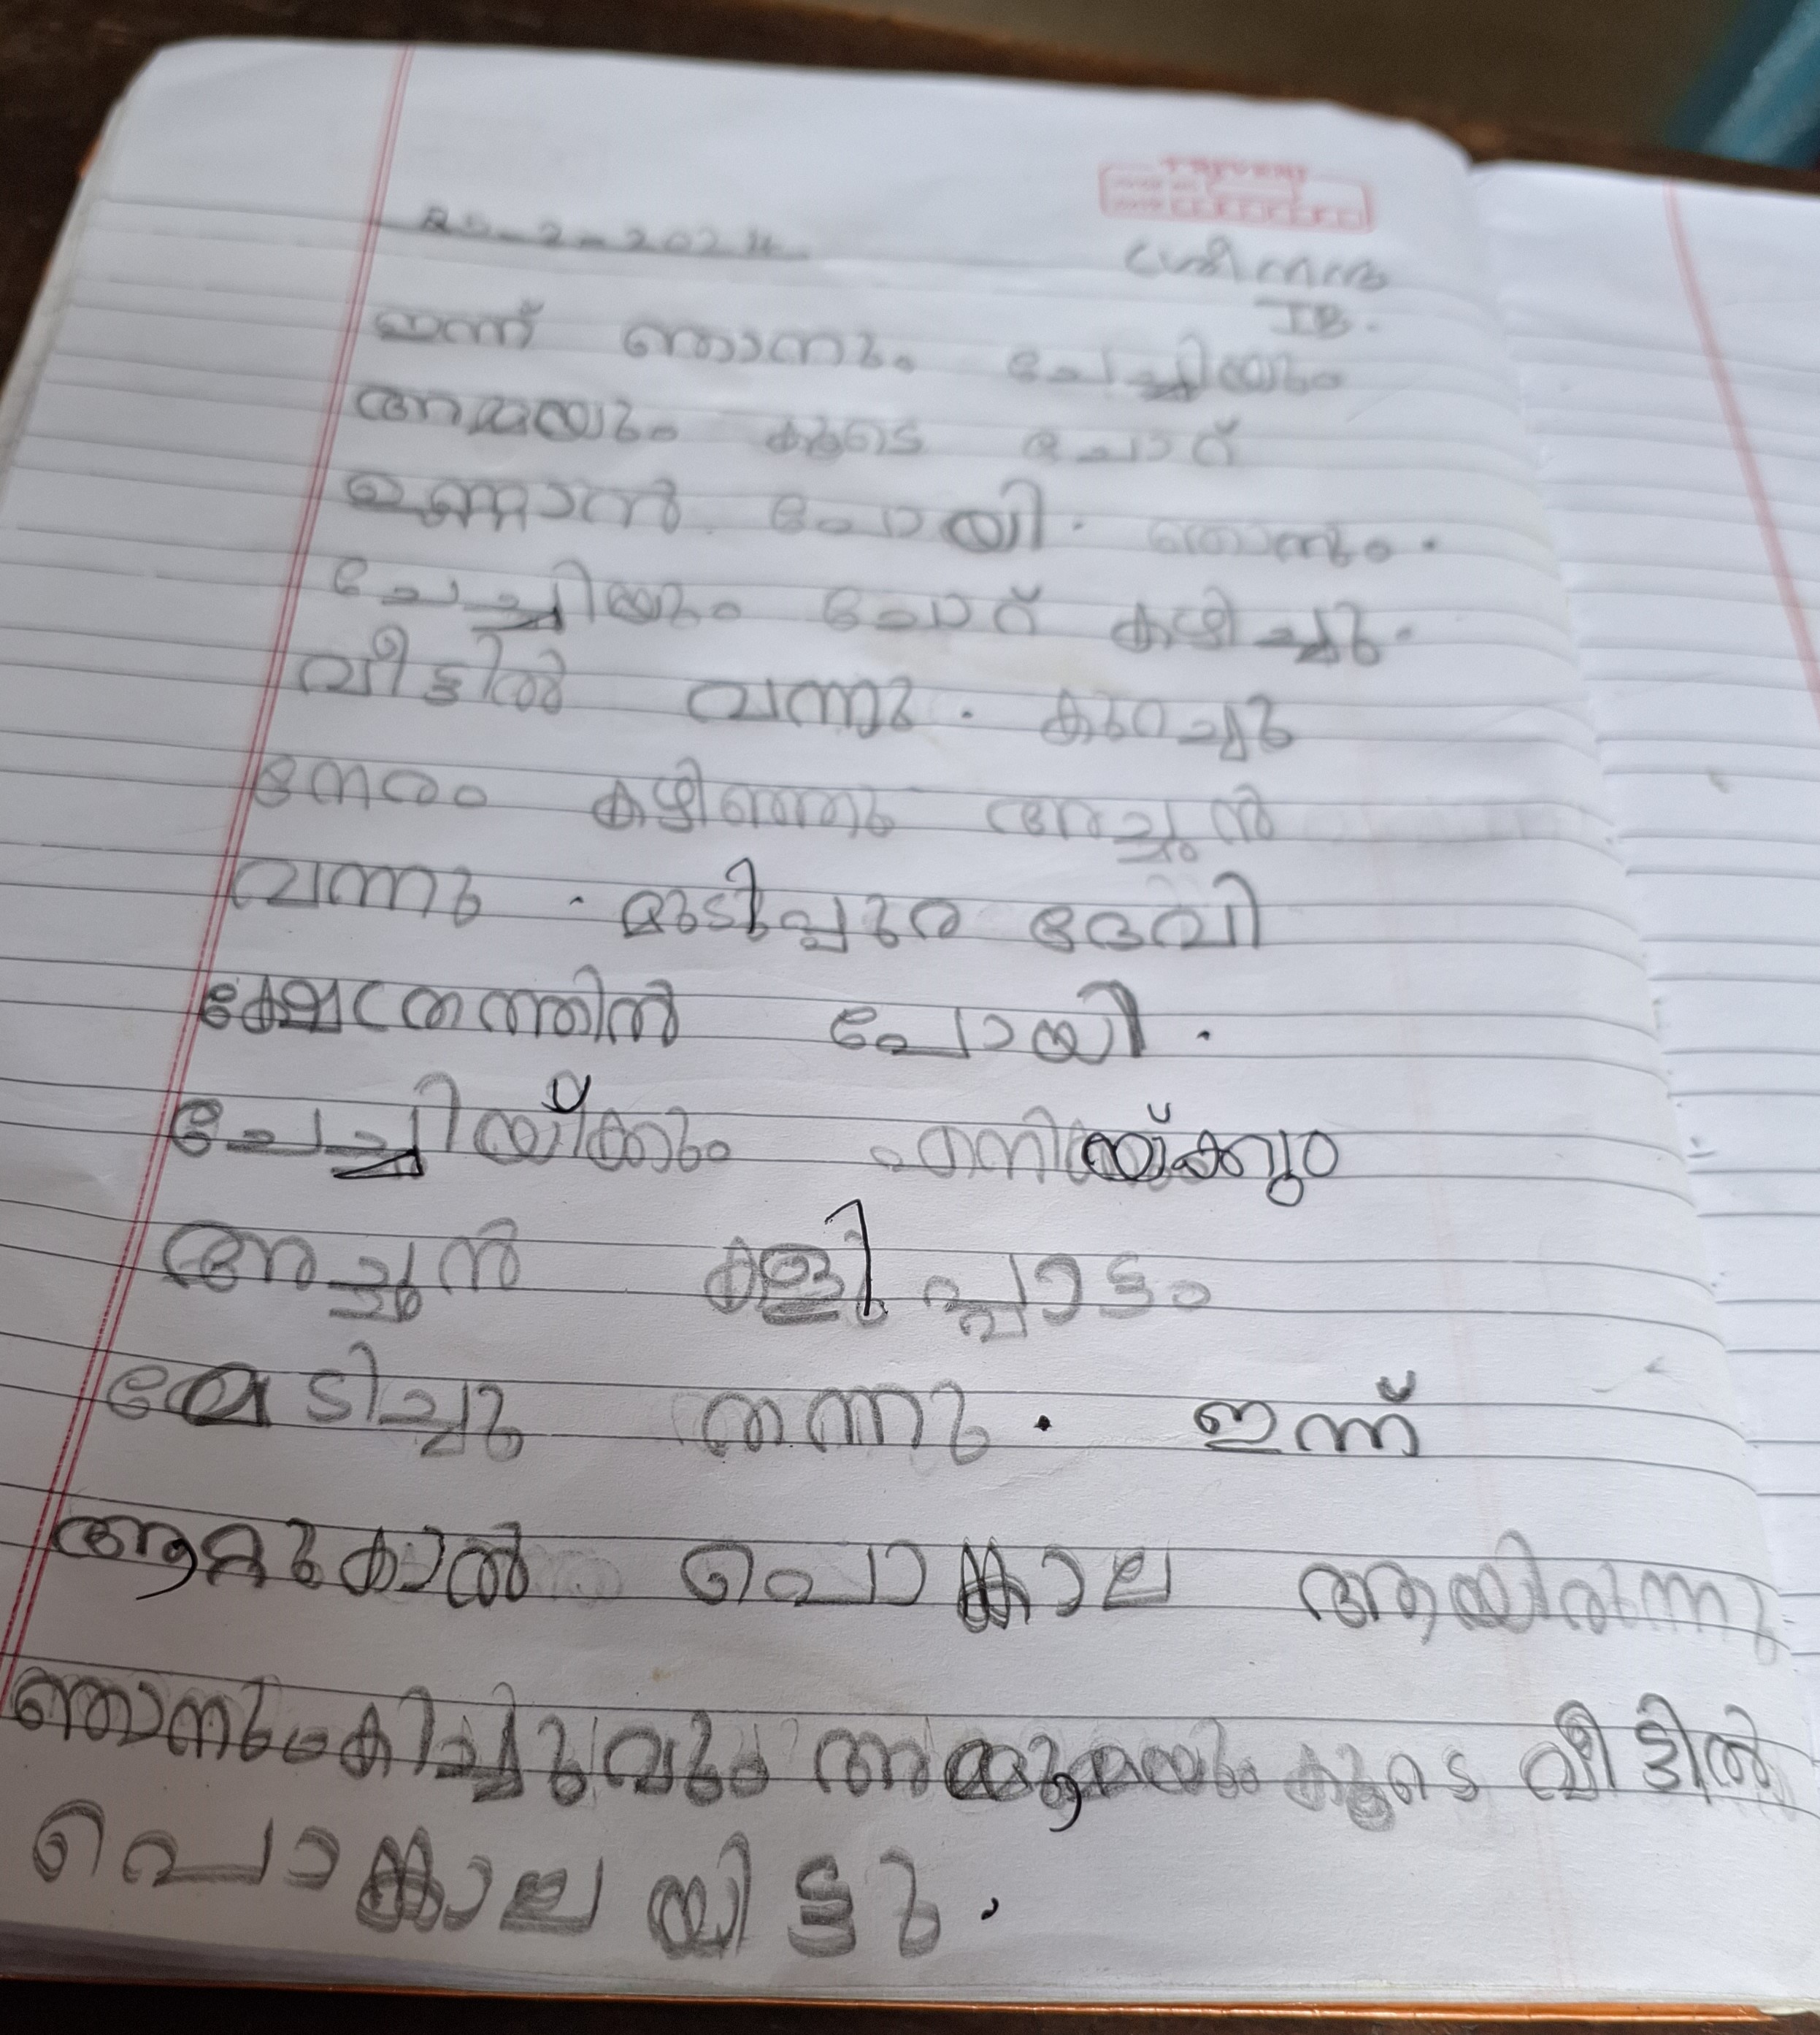 25-2-2024
ശ്രീനന്ദ
I B.
ഇന്ന് ഞാനും ചേച്ചിയും
അമ്മയും കൂടെ ചോറ്
ഉണ്ണാൻ പോയി. ഞാനും.
ചേച്ചിയും ചോറ് കഴിച്ചു.
വീട്ടിൽ വന്നു. കുറച്ചു
നേരം കഴിഞ്ഞു അച്ഛൻ
വന്നു. മുടിപ്പുര ദേവി
ക്ഷേത്രത്തിൽ പോയി.
ചേച്ചിയ്ക്കും എനിയ്ക്കും
അച്ഛൻ കളിപ്പാട്ടം
മേടിച്ചു തന്നു. ഇന്ന്
ആറ്റുകാൽ പൊങ്കാല ആയിരുന്നു
ഞാനും കിച്ചുവും അമ്മൂമ്മയും കൂടെ വീട്ടിൽ
പൊങ്കാലയിട്ടു.